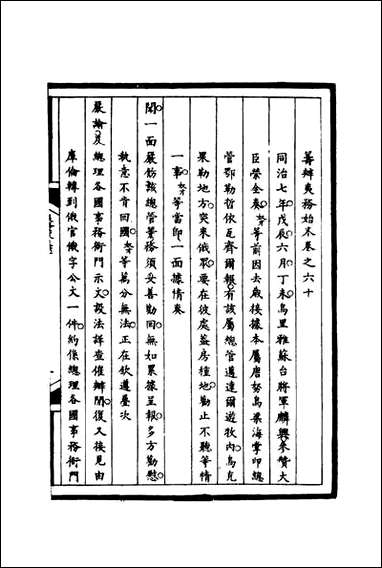 籌辦夷務始末卷之六十
同治七年戊辰六月丁未烏里雅蘇台將軍麟興參贊大
臣榮全奏奴才等前因去歲接據本屬唐努烏梁海掌印總
管鄂勒哲依瓦齊爾報有該屬總管邁達爾遊牧內烏克
果勒地方突來俄眾要在彼處蓋房種地勸止不聽等情
一事奴才等當即一面據情奏
聞一面嚴飭該總管等務須妥善勸回無如累據呈報多方勸慰
執意不肯回國奴才等萬分無法正在欽遵屢次
嚴諭及總理各國事務衙門示文設法詳查催辦間復又接見由
庫倫轉到俄官俄字公文一件約係總理各國事務衙門